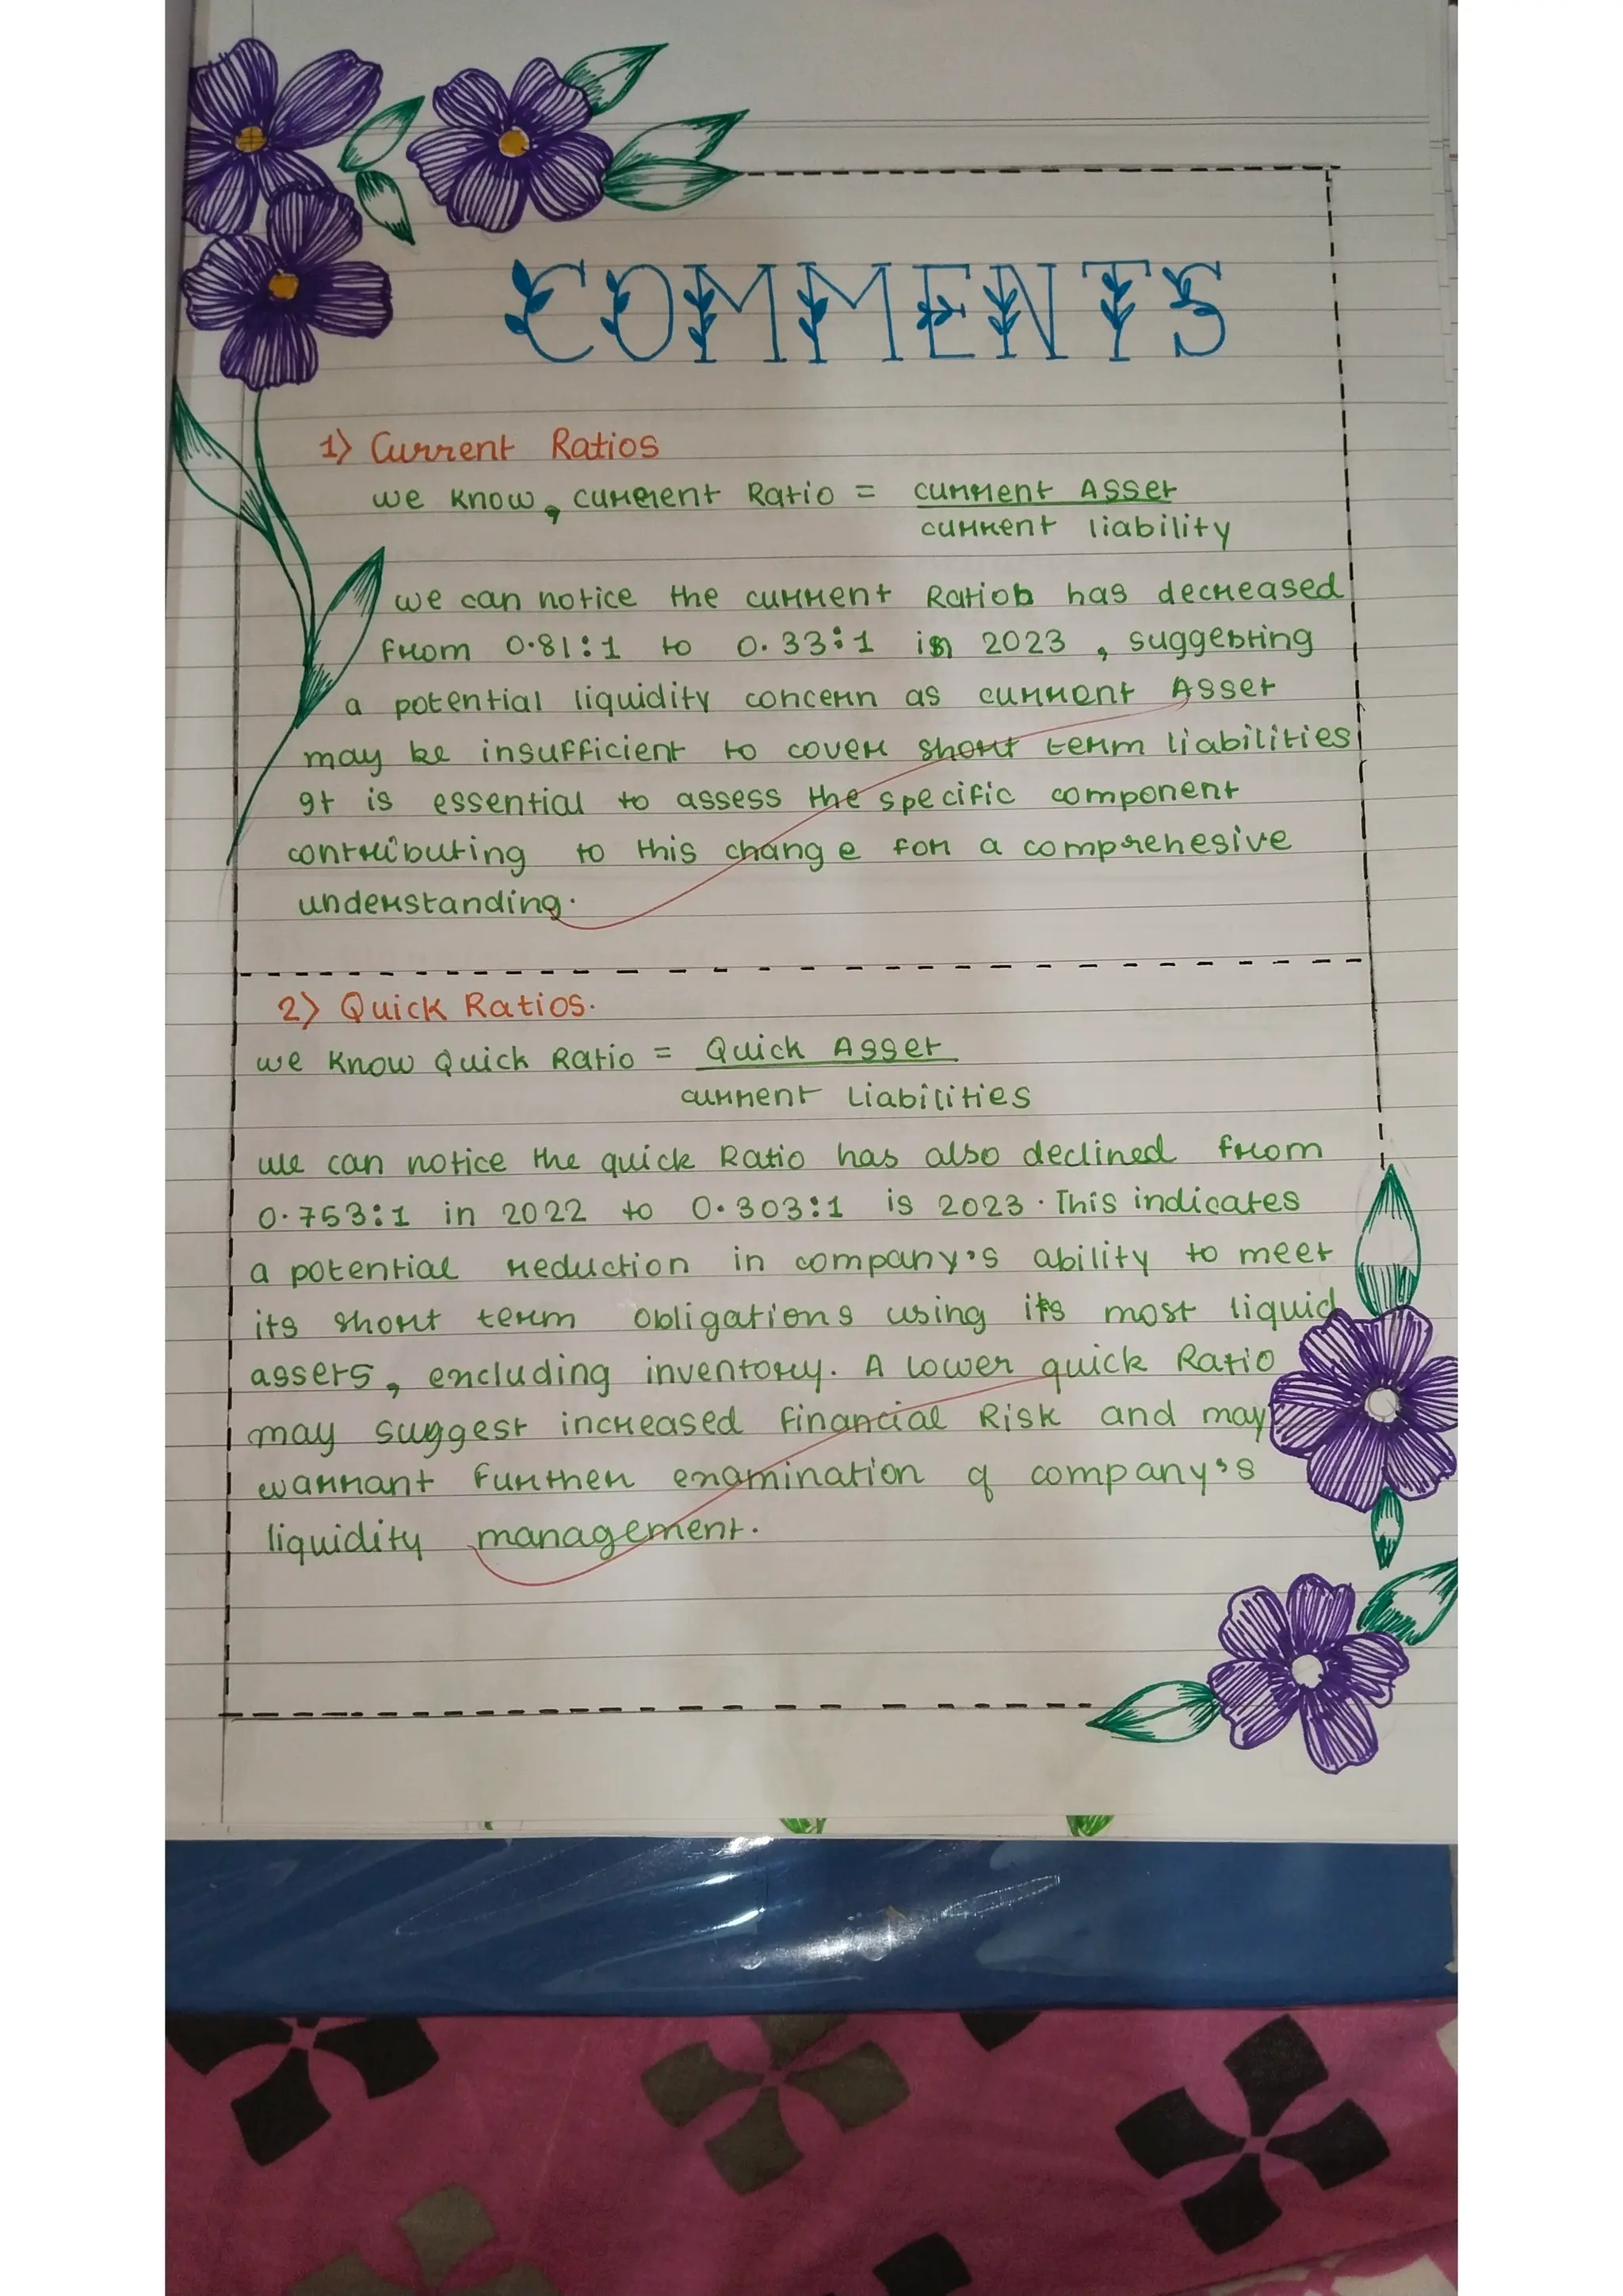 COMMENTS
1) Current Ratios
we know, current Ratio = current Asset
current liability
we can notice the current Ratios has decreased
from 0.81:1 to 0.33:1 in 2023, suggesting
a potential liquidity concern as current Asset
may be insufficient to cover short term liabilities
It is essential to assess the specific component
contributing to this change for a comprehesive
understanding.
2) Quick Ratios.
we know Quick Ratio = Quick Asset
current Liabilities
we can notice the quick Ratio has also declined from
0.753:1 in 2022 to 0.303:1 is 2023. This indicates
a potential reduction in company's ability to meet
its short term obligations using its most liquid
assets, excluding inventory. A lower quick Ratio
may suggest increased financial Risk and may
warrant further examination of company's
liquidity management.